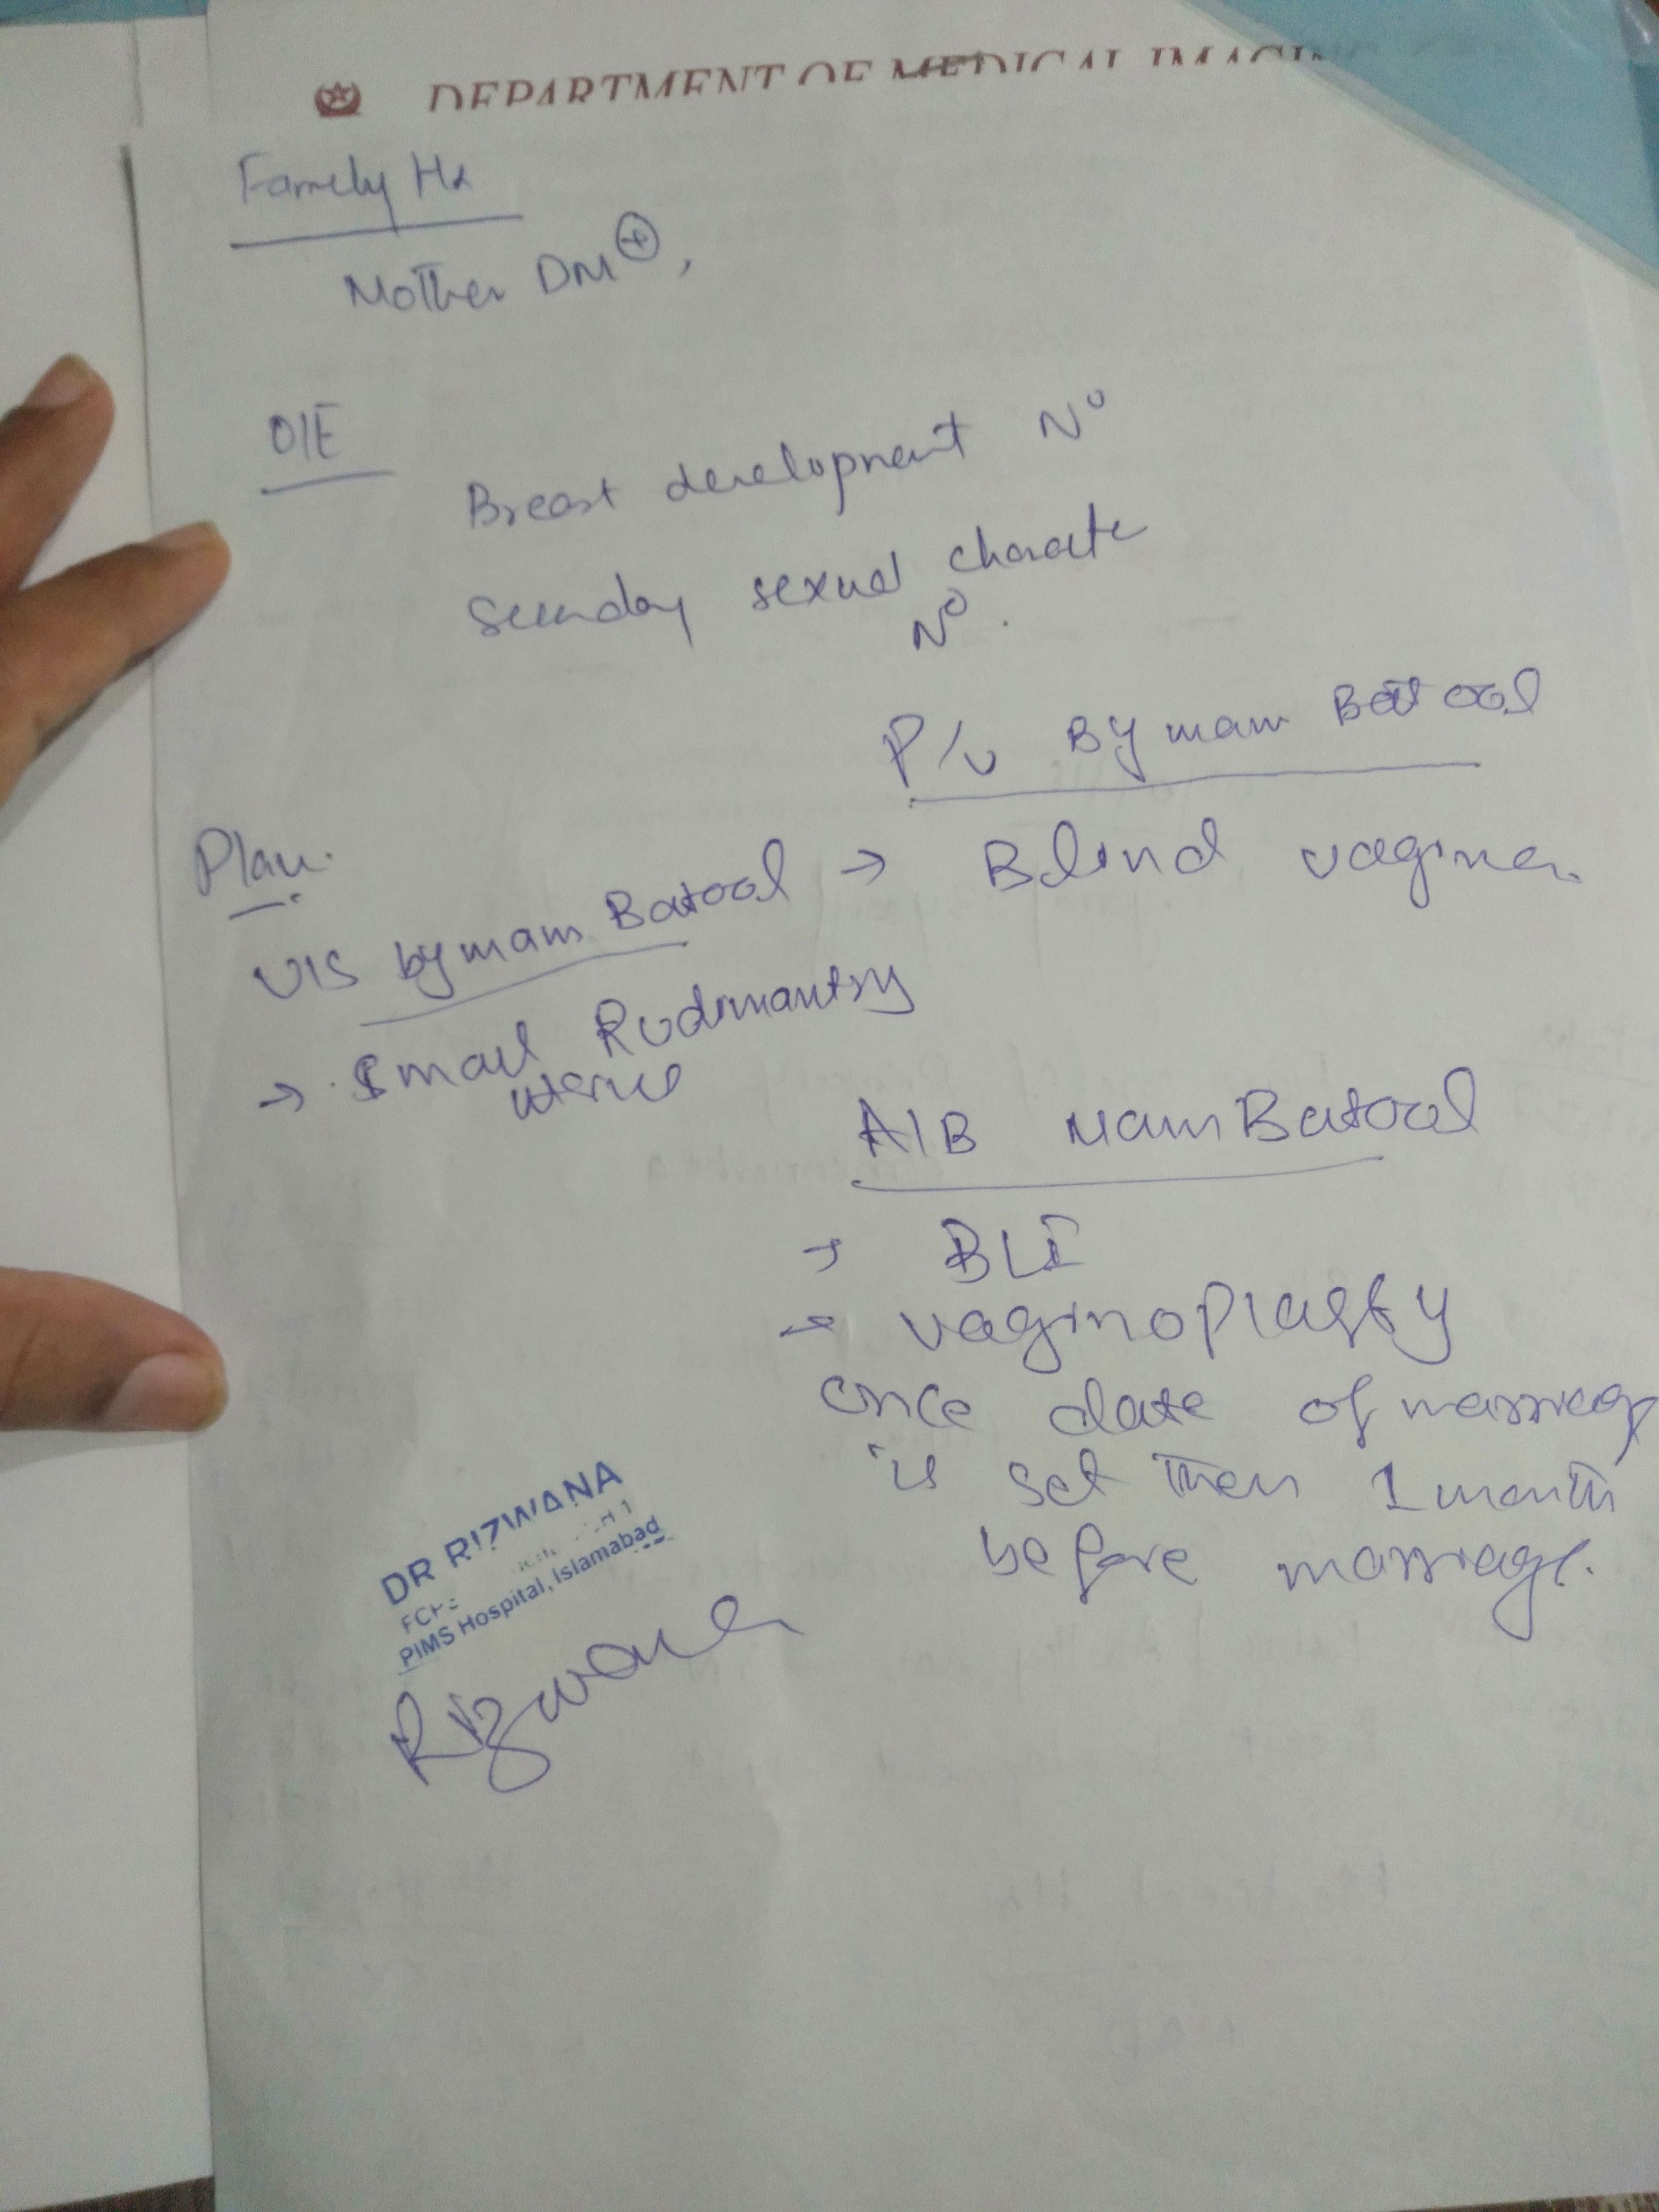 DEPARTMENT OF MEDICAL IMAGING
Family Hx
Mother DM⊕,
O/E
Breast development N⁰
sexual characte
N⁰.
P/V By mam Batool
Plan.
→ Blind vagina.
U/S by mam Batool
→ Small Rudimantry
uterus
A/B Mam Batool
→
→ vaginoplasty
once date of marriag
is set then 1 month
before marriage.
DR RIZWANA
PIMS Hospital, Islamabad
Rizwana